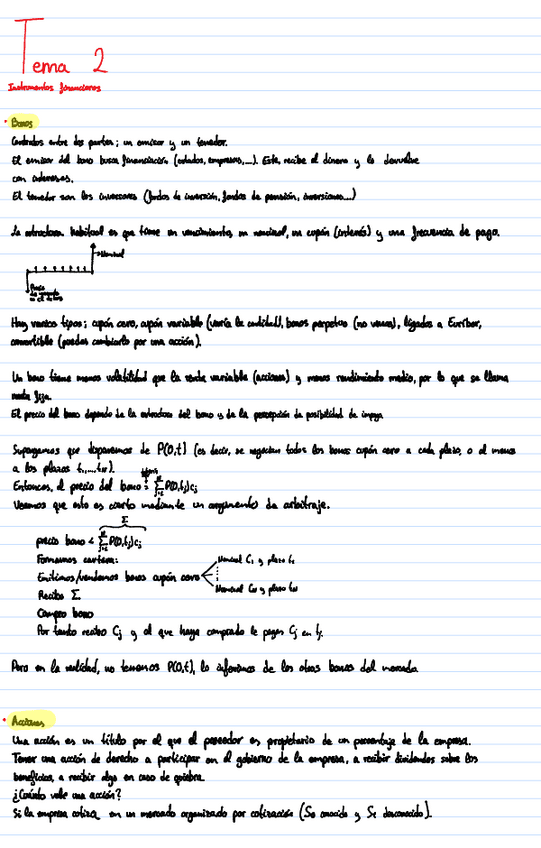 Tema 2
Instrumentos financieros
• Bonos
Contratos entre dos partes; un emisor y un tenedor.
El emisor del bono busca financiación (estados, empresas,...). Este, recibe el dinero y lo devuelve
con intereses.
El tenedor son los inversores (fondos de inversión, fondos de pensión, inversiones...)
La estructura habitual es que tiene un vencimiento, un nominal, un cupón (interés) y una frecuencia de pago.
Nominal
Precio
Hay varios tipos; cupón cero, cupón variable (varía la cantidad), bonos perpetuos (no vencen), ligados a Euribor,
convertible (puedes cambiarlo por una acción).
Un bono tiene menos volatilidad que la renta variable (acciones) y menos rendimiento medio, por lo que se llama
renta fija.
El precio del bono depende de la estructura del bono y de la percepción de posibilidad de impago
Supongamos que disponemos de P(0,t) (es decir, se negocian todos los bonos cupón cero a cada plazo, o al menos
a los plazos t₁,...,t_N).
Entonces, el precio del bono = Σ P(0,t_j)c_j
Veamos que esto es cierto mediante un argumento de arbitraje.
Σ
precio bono < Σ P(0,t_j)c_j
Formamos cartera:
Nominal C₁ y plazo t₁
Emitimos/vendemos bonos cupón cero
Nominal C_N y plazo t_N
Recibo Σ
Compro bono
Por tanto recibo C_j y al que haya comprado le pago C_j en t_j.
Pero en la realidad, no tenemos P(0,t), lo inferimos de los otros bonos del mercado
• Acciones
Una acción es un título por el que el poseedor es propietario de un porcentaje de la empresa.
Tener una acción da derecho a participar en el gobierno de la empresa, a recibir dividendos sobre los
beneficios, a recibir algo en caso de quiebra.
¿Cuánto vale una acción?
Si la empresa cotiza en un mercado organizado por cotización (S₀ conocido y S_t desconocido).